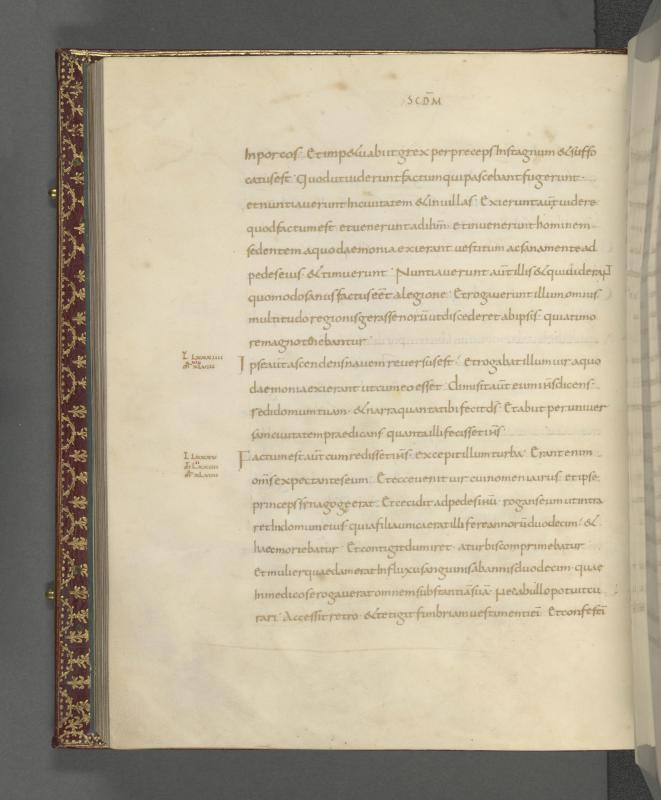 SCDM
In porcos· Et impetu abiit grex per preceps In stagnum & suffo
catus est· Quod ut uiderunt factum qui pascebant fugerunt·
et nuntiauerunt In ciuitatem & in uillas· Exierunt aut uidere
quod factum est et uenerunt ad ihm· et inuenerunt hominem
sedentem a quo daemonia exierant uestitum ac sana mente ad
pedes eius· & timuerunt· Nuntiauerunt aut illis & qui uiderant
quomodo sanus factus eet a legione· Et rogauerunt illum omnis
multitudo regionis gerassenorū ut discederet ab ipsis· quia timo
re magno tenebantur
Ipse aut ascendens nauem reuersus est· Et rogabat illum uir a quo
daemonia exierant ut cum eo esset· Dimisit aut eum ihs dicens·
redi domum tuam· & narra quanta tibi fecit ds· Et abiit per uniuer
sam ciuitatem praedicans quanta illi fecisset ihs·
Factum est aut cum redisset ihs· excepit illum turba· Erant enim
oms expectantes eum Et ecce uenit uir cui nomen iairus· et ipse
princeps synagogę erat· Et cecidit ad pedes ihu· rogans eum ut intra
ret In domum eius· quia filia unica erat illi fere annorū duodecim· &
haec moriebatur· Et contigit dum iret· a turbis comprimebatur
Et mulier quaedam erat In fluxu sanguinis ab annis duodecim· quae
In medicos erogauerat omnem substantiā suā· Nec ab ullo potuit cu
rari· Accessit retro· & tetigit fimbriam uestimenti ei· Et confesti